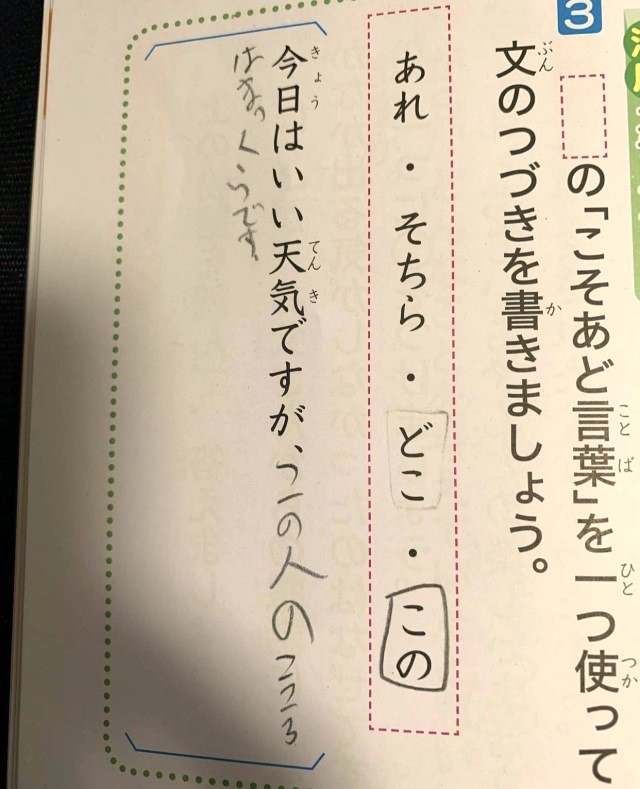 3
□の「こそあど言葉」を一つ使って
文のつづきを書きましょう。
あれ・そちら・どこ・この
今日はいい天気ですが、この人のこころ
はまっくらです。